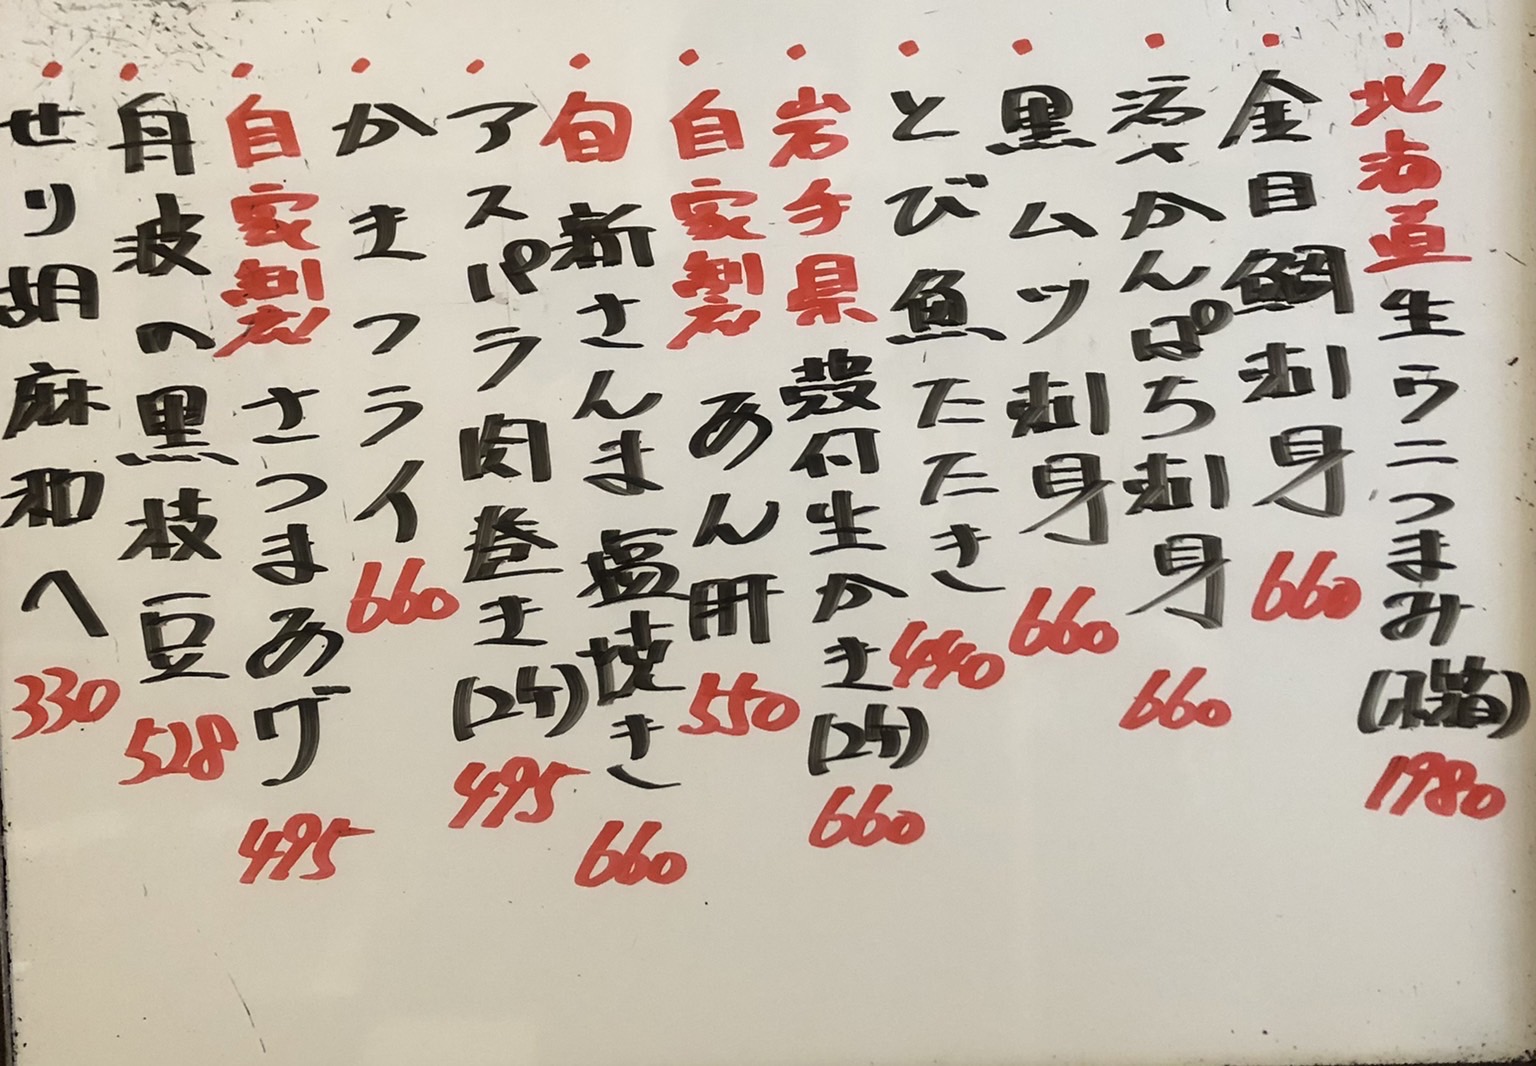 ・北海道生ウニつまみ(小箱) 1980
・金目鯛刺身 660
・活〆かんぱち刺身 660
・黒ムツ刺身 660
・とび魚たたき 440
・岩手県 殻付生かき(2ケ) 660
・自家製 あん肝 550
・旬 新さんま塩焼き 660
・アスパラ肉巻き(2ケ) 495
・かきフライ 660
・自家製 さつまあげ 495
・丹波の黒枝豆 528
・せり胡麻和へ 330